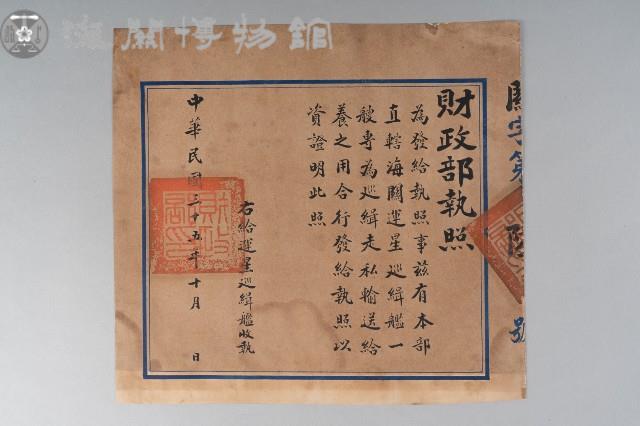 海關博物館
關字第 號
財政部執照
為發給執照事茲有本部
直轄海關運星巡緝艦一
艘專為巡緝走私輸送給
養之用合行發給執照以
資證明此照
右給運星巡緝艦收執
中華民國三十五年十月 日